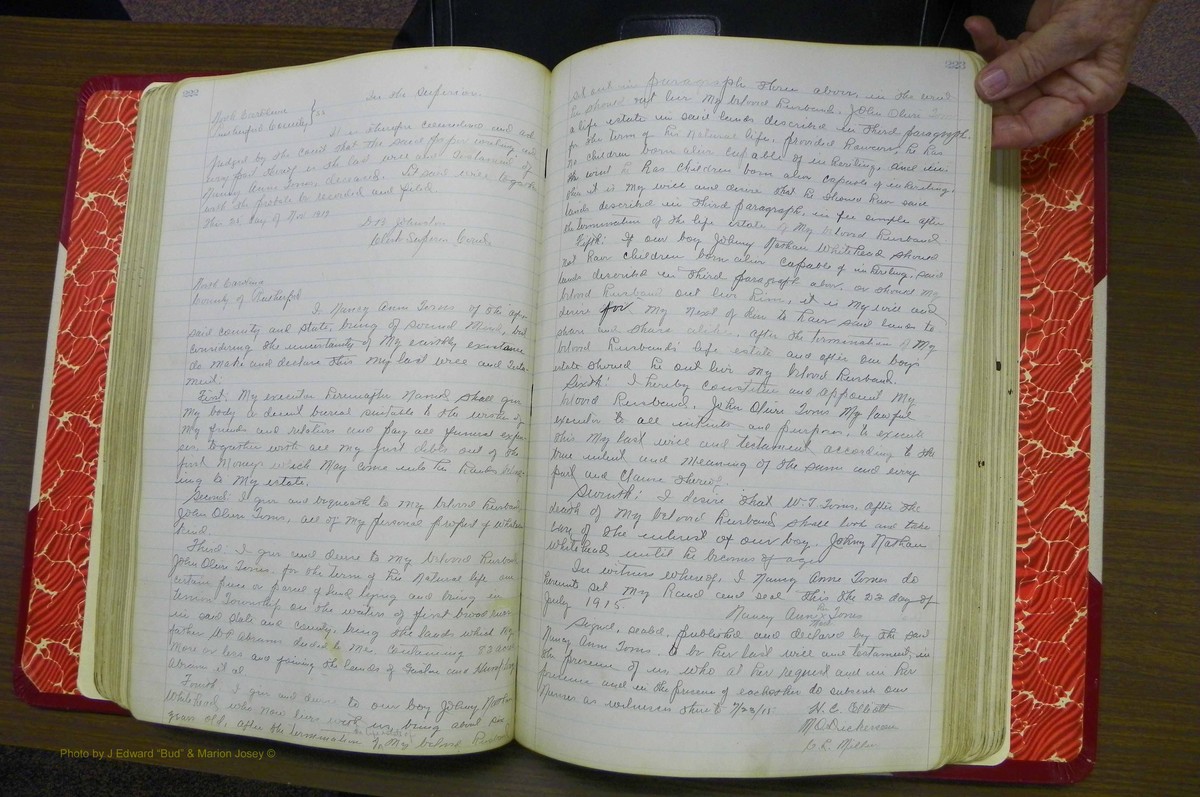 222
North Carolina
Rutherford County } ss
In the Superior
It is therefore considered and ad
judged by the court that the said paper writing and
every part thereof is the last will and testament of
Nancy Ann Toms, deceased. Let said will together
with the probate be recorded and filed.
This 21 day of Nov
Clerk Superior Court.
North Carolina
County of Rutherford
I Nancy Ann Toms of the afore
said county and state, being of sound mind, but
considering the uncertainty of my earthly existance
do make and declare this my last will and Testa
ment:
First: My executor hereinafter named shall give
my body a decent burial suitable to the wishes of
my friends and relatives and pay all funeral expen
ses, together with all my just debts out of the
first moneys which may come into the hands belong
ing to my estate.
Second: I give and bequeath to my beloved husband
John Oliver Toms, all of my personal property of whatever
kind.
Third: I give and devise to my beloved husband
John Oliver Toms, for the term of his natural life one
certain piece or parcel of land lying and being in
Township on the waters of first broad river
in said state and county, being the lands which my
father W Abrams deeded to me, containing 82 acres
more or less and joining the lands of and
Abram et al
Fourth: I give and devise to our boy Johny Nathan
Whitehead, who now lives with us, being about five
years old, after the termination of my beloved Husband
223
set out in paragraph three above, in the event
he should out live my beloved husband, John Oliver
a life estate in said lands described in third paragraph
for the term of his natural life, provided however, he has
no children born alive capable of inheriting, and in
the event he has children born alive capable of inheriting,
then it is my will and desire that he should have said
lands described in third paragraph, in fee simple after
the termination of the life estate of my beloved husband
Fifth: If our boy Johny Nathan Whitehead should
not have children born alive capable of inheriting, said
lands described in third paragraph above, or should my
beloved husband out live him, it is my will and
desire for my next of kin to have said lands to
share and share alike, after the termination of my
beloved husbands life estate and after our boys
estate should he out live my beloved husband.
Sixth: I hereby constitute and appoint my
beloved husband, John Oliver Toms my lawful
executor to all intents and purposes, to execute
this my last will and testament according to the
true intent and meaning of the same and every
part and clause thereof.
Seventh: I desire that W.T. Toms, after the
death of my beloved husband shall look and take
care of the interest of our boy, Johny Nathan
Whitehead until he becomes of age
In witness whereof, I Nancy Ann Toms do
hereunto set my hand and seal this the 23 day of
July 1915.
Nancy Ann x Toms
her
mark
Signed, sealed, published and declared by the said
Nancy Ann Toms to be her last will and testament, in
the presence of us, who at her request and in her
presence and in the presence of each other do subscribe our
names as witnesses thereto 7/23/15:
H. C. Elliott
M.O. Dickerson
C. L. Miller
Photo by J Edward "Bud" & Marion Josey ©